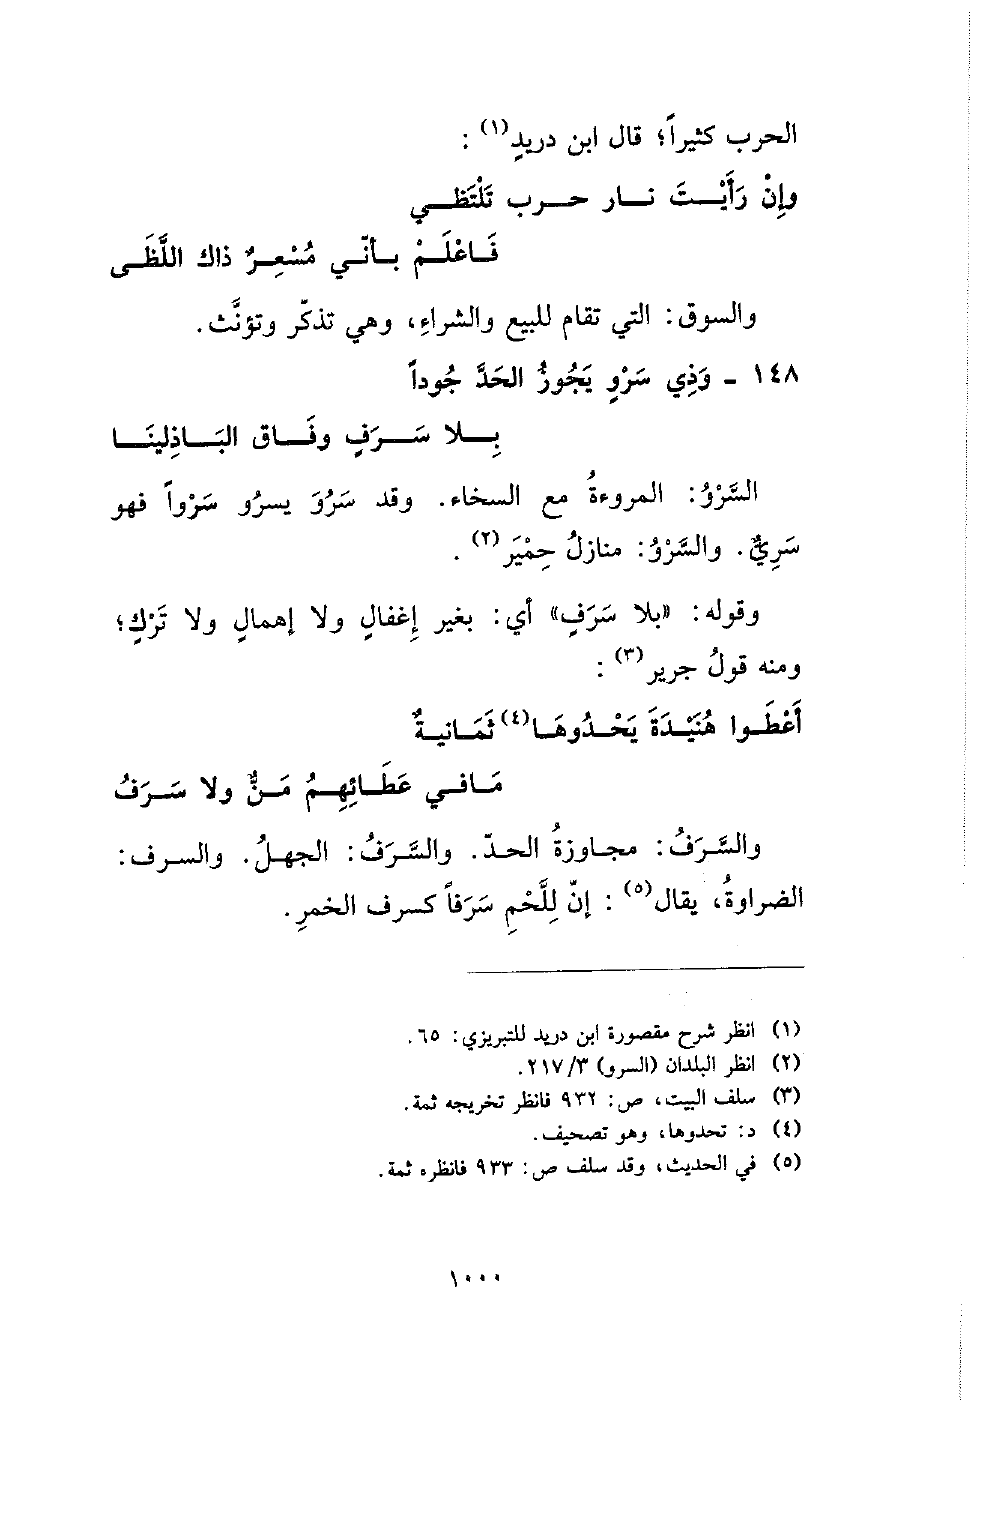 الحرب كثيراً؛ قال ابن دريدٍ(١) :
وإِنْ رَأَيْـــتَ نــار حـــرب تَلْتَظــي
فَــاعْلَــمْ بــأنّــي مُسْعِــرٌ ذاك اللَّظَــى
والسوق: التي تقام للبيع والشراءِ، وهي تذكّر وتؤنَّث.
١٤٨ - وَذِي سَرْوٍ يَجُوزُ الحَدَّ جُوداً
بِـــلا سَـــرَفٍ وفَــاق البَــاذِلِينَــا
السَّرْوُ: المروءةُ مع السخاء. وقد سَرُوَ يسرُو سَرْواً فهو
سَرِيٌّ. والسَّرْوُ: منازلُ حِمْيَر(٢) .
وقوله: «بلا سَرَفٍ» أي: بغير إِغفالٍ ولا إهمالٍ ولا تَرْكٍ؛
ومنه قولُ جرير(٣) :
أَعْطَــوا هُنَيْــدَةَ يَحْــدُوهَــا(٤) ثَمَــانيــةٌ
مَــافــي عَطَــائِهِــمُ مَــنٌّ ولا سَــرَفُ
والسَّرَفُ: مجاوزةُ الحدّ. والسَّرَفُ: الجهلُ. والسرف:
الضراوةُ، يقال(٥) : إنّ لِلَّحْمِ سَرَفاً كسرف الخمرِ.
(١) انظر شرح مقصورة ابن دريد للتبريزي: ٦٥.
(٢) انظر البلدان (السرو) ٢١٧/٣.
(٣) سلف البيت، ص: ٩٣٢ فانظر تخريجه ثمة.
(٤) د: تحدوها، وهو تصحيف.
(٥) في الحديث، وقد سلف ص: ٩٣٣ فانظره ثمة.
١٠٠٠